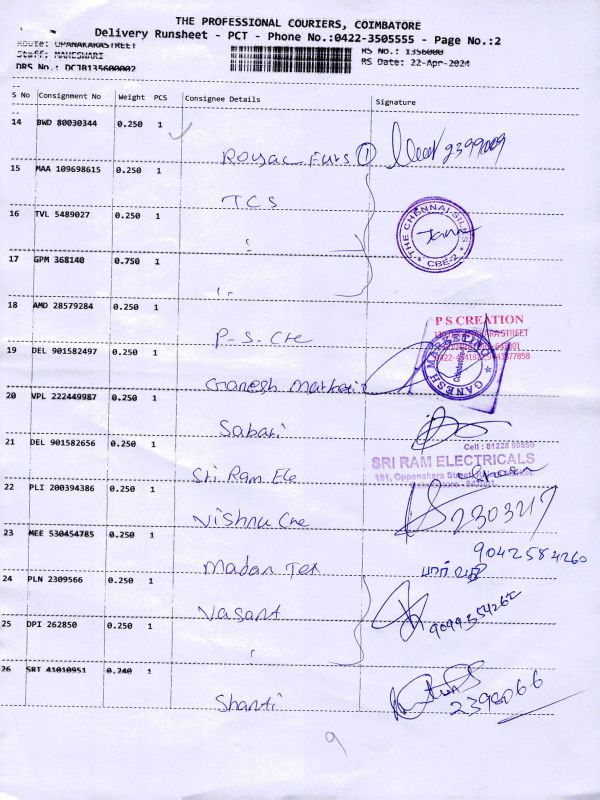 THE PROFESSIONAL COURIERS, COIMBATORE
Delivery Runsheet - PCT - Phone No.:0422-3505555 - Page No.:2
Route: OPANAKARASTREET
Staff: MAHESWARI
DRS No.: DCJB135600002
RS No.: 1356000
RS Date: 22-Apr-2024
S No Consignment No Weight PCS Consignee Details Signature
14 BWD 80030344 0.250 1
Royal Furs 1 2399009
15 MAA 109698615 0.250 1
TCS
THE CHENNAI SILKS
CBE-2
16 TVL 5489027 0.250 1
17 GPM 368140 0.750 1
18 AMD 28579284 0.250 1
P-S-Cre
P S CREATION
19 DEL 901582497 0.250 1
Ganesh Marketing
GANESH MARKETING
Coimbatore
20 VPL 222449987 0.250 1
Sabari
21 DEL 901582656 0.250 1
Sri Ram Ele
Cell : 81228 98850
SRI RAM ELECTRICALS
22 PLI 200394386 0.250 1
Vishnu Cre
2303217
23 MEE 530454785 0.250 1
Madan Tex
9042584260
24 PLN 2309566 0.250 1
Vasant
25 DPI 262850 0.250 1
26 SRT 41010951 0.240 1
Shanti
2398066
9